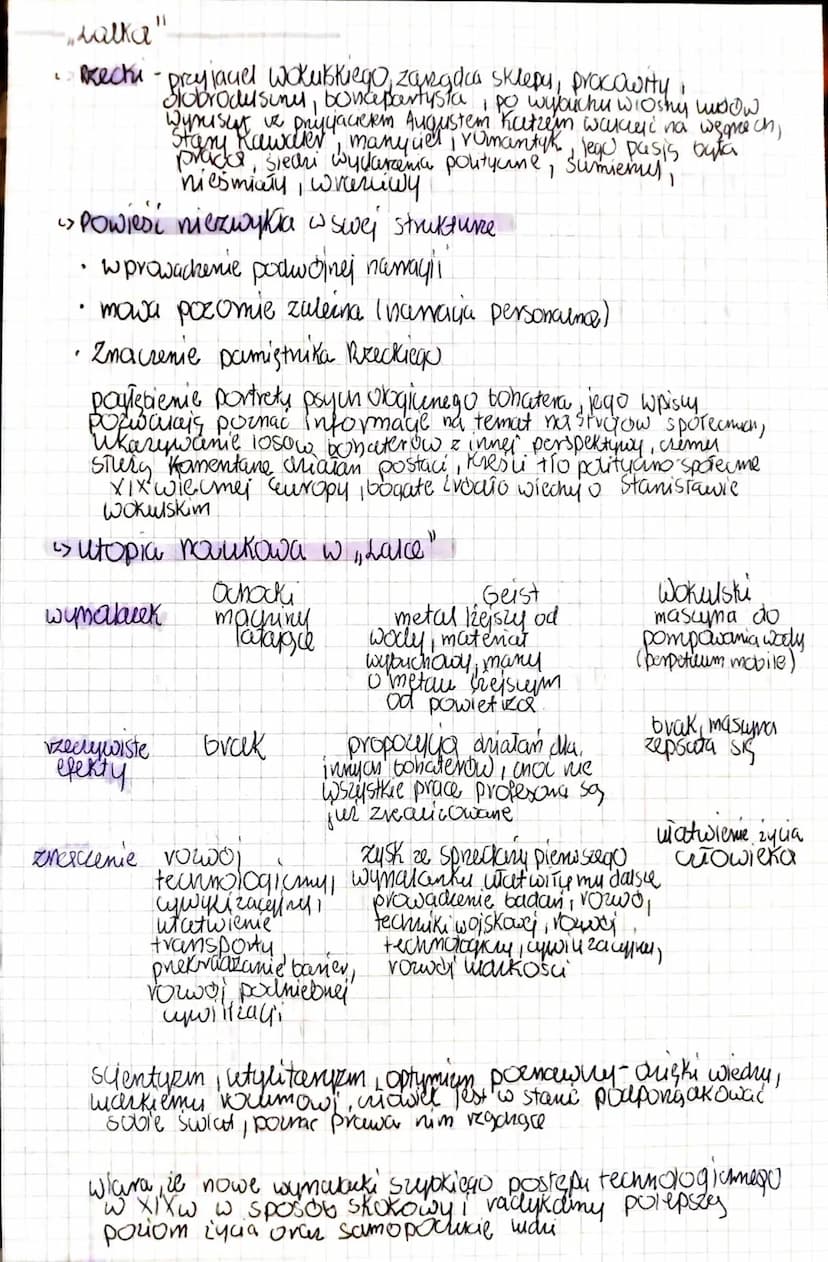 „Lalka"
↳ Rzecki - przyjaciel Wokulskiego, zarządca sklepu, pracowity,
dobroduszny, bonapartysta, po wybuchu wiosny ludów
wyruszył ze przyjacielem Augustem Katzem walczyć na węgrzech,
stary kawaler, marzyciel, romantyk, jego pasją była
praca, śledzi wydarzenia polityczne, sumienny,
nieśmiały, wrażliwy
↳ Powieść niezwykła w swej strukturze
• wprowadzenie podwójnej narracji
• mowa pozornie zależna (narracja personalna)
• Znaczenie pamiętnika Rzeckiego
pogłębienie portretu psychologicznego bohatera, jego wpisy
pozwalają poznać informacje na temat nastrojów społecznych,
ukazywanie losów bohaterów z innej perspektywy, czemu
służą komentarze działań postaci, kreśli tło polityczno społeczne
XIX wiecznej Europy, bogate źródło wiedzy o Stanisławie
Wokulskim
↳ Utopia naukowa w „Lalce"
Ochocki Geist Wokulski
wynalazek maszyny metal lżejszy od maszyna do
latające wody, materiał pompowania wody
wybuchowy, marzy (perpetuum mobile)
o metalu lżejszym
od powietrza
rzeczywiste brak propozycja działań dla brak, maszyna
efekty innych bohaterów, choć nie zepsuła się
wszystkie prace profesora są
już zrealizowane
znaczenie rozwój zysk ze sprzedaży pierwszego ułatwienie życia
technologiczny, wynalazku ułatwiłby mu dalsze człowieka
cywilizacyjny, prowadzenie badań, rozwój
ułatwienie techniki wojskowej, rozwój
transportu, technologiczny, cywilizacyjny,
przekraczanie barier, rozwój ludzkości
rozwój podniebnej
cywilizacji
scjentyzm, utylitaryzm, optymizm poznawczy - dzięki wiedzy,
ludzkiemu rozumowi, człowiek jest w stanie podporządkować
sobie świat, poznać prawa nim rządzące
wiara, że nowe wynalazki szybkiego postępu technologicznego
w XIXw w sposób skokowy i radykalny polepszą
poziom życia oraz samopoczucie ludzi